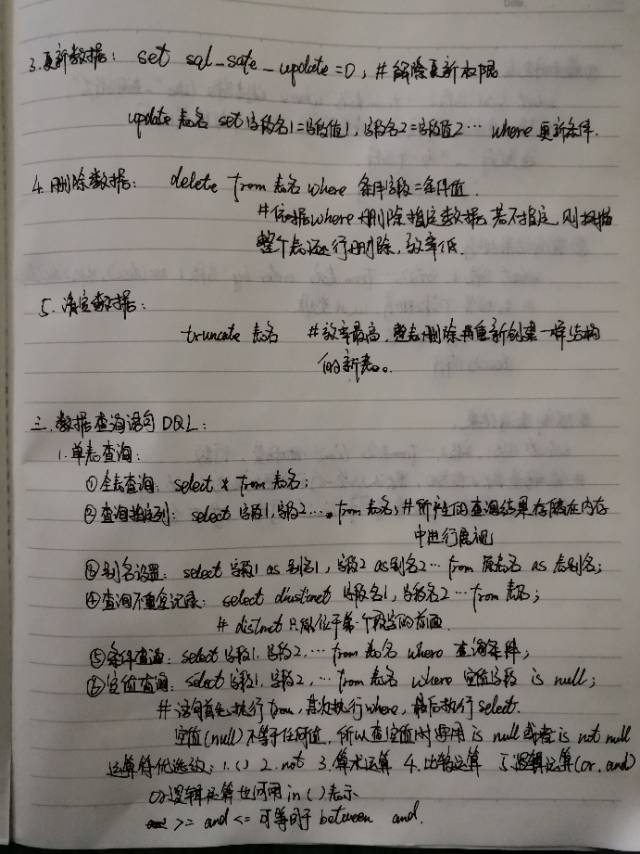 3.更新数据: set sql_safe_update=0; #解除更新权限
update 表名 set 字段名1=字段值1, 字段名2=字段值2… where 更新条件.
4.删除数据: delete from 表名 where 条件字段=条件值.
#依据where删除指定数据, 若不指定, 则扫描
整个表逐行删除, 效率低.
5.清空数据:
truncate 表名 #效率最高, 整表删除再重新创建一样结构
的新表。
三.数据查询语句DQL:
1.单表查询:
①全表查询: select * from 表名;
②查询指定列: select 字段1,字段2…. from 表名; #所产生的查询结果存储在内存
中进行展现
③别名设置: select 字段1 as 别名1, 字段2 as 别名2… from 原表名 as 表别名;
④查询不重复记录: select distinct 字段名1, 字段名2… from 表名;
# distinct 只能位于第一个字段的前面.
⑤条件查询: select 字段1.字段2, … from 表名 where 查询条件;
⑥空值查询: select 字段1.字段2, … from 表名 where 空值字段 is null;
#语句首先执行from, 其次执行where, 最后执行select.
空值(null)不等于任何值, 所以查空值时要用 is null 或者 is not null
运算符优先级: 1.() 2.not 3.算术运算 4.比较运算 5.逻辑运算(or.and)
or逻辑运算也可用in()表示
>= and <= 可等同于 between and.